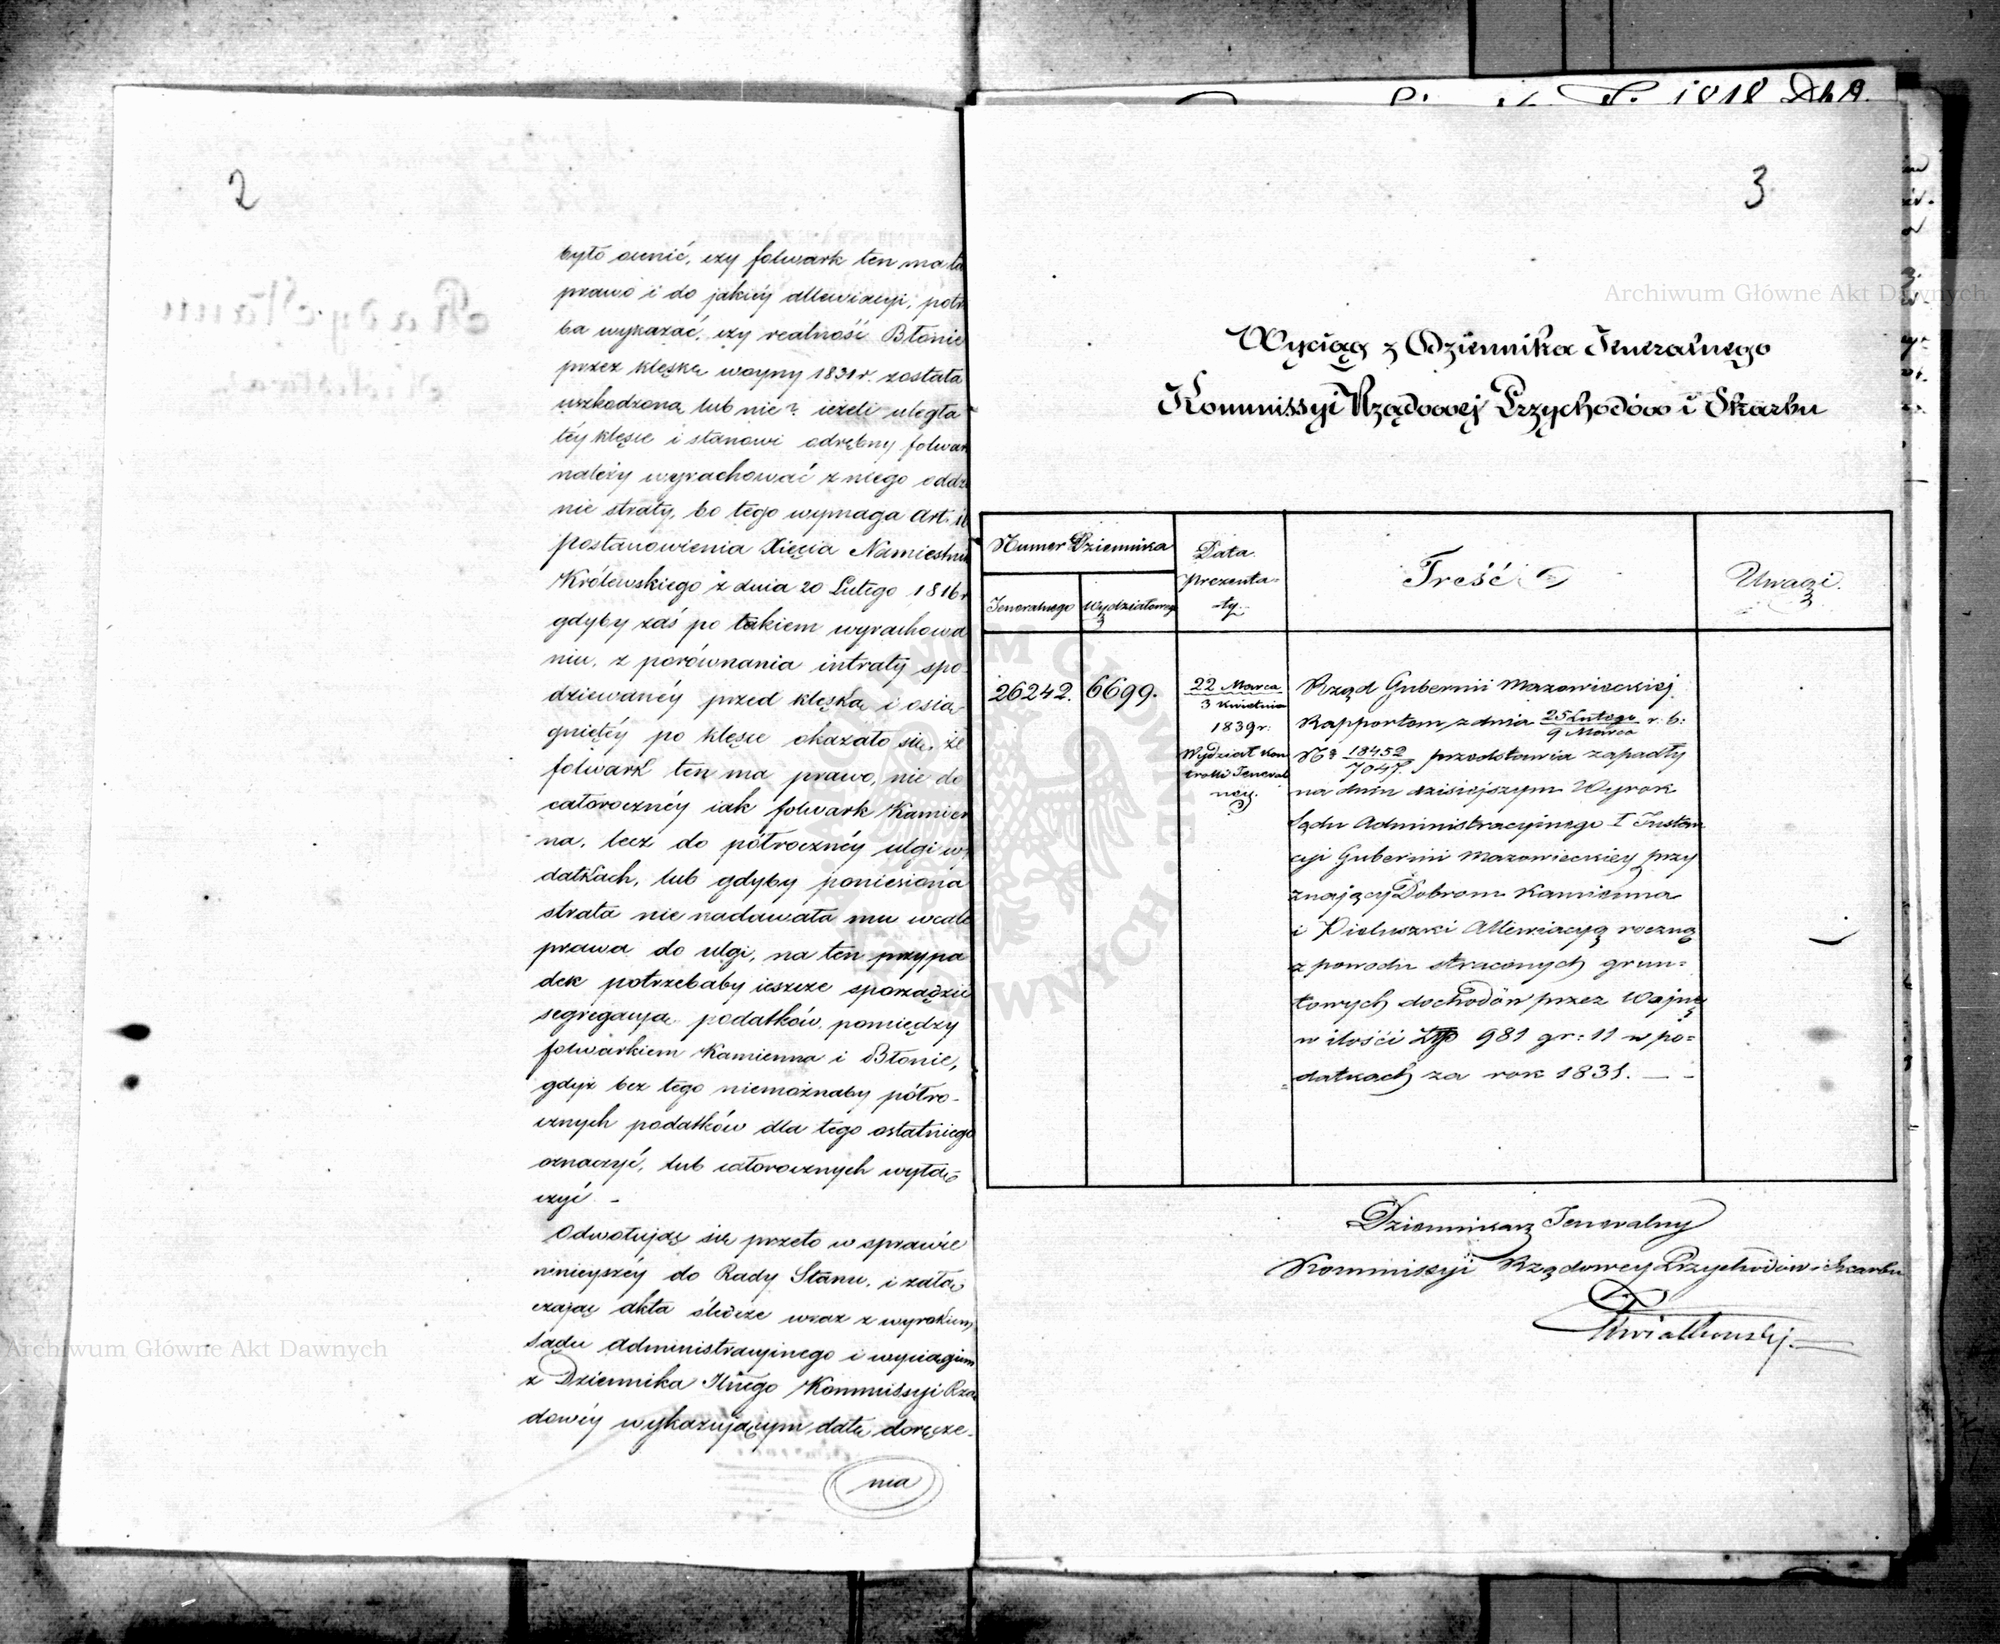 2
było ocenić, czy folwark ten ma ta
prawo i do jakiéy allewiacyi, potr
ba wykazać, czy realność Błonie
przez klęskę woyny 1831 r. została
uszkodzoną lub nie? ieżeli uległa
téy klęsce i stanowi odrębny folwar
należy wyrachować z niego oddz
nie straty, bo tego wymaga Art. 16
postanowienia Xięcia Namiestnik
Królewskiego z dnia 20 Lutego 1816 r
gdyby zaś po takiem wyrachowa
niu, z porównania intraty spo
dziewanéy przed klęską i osią-
gniętéy po klęsce okazało się, że
folwark ten ma prawo, nie do
całorocznéy iak folwark Kamien
na, lecz do półrocznéy ulgi w
datkach, lub gdyby poniesiona
strata nie nadawała mu wcale
prawa do ulgi, na ten przypa
dek potrzebaby ieszcze sporządzić
segregacyą podatków pomiędzy
folwarkiem Kamienna i Błonie,
gdyż bez tego niemożnaby półro-
cznych podatków dla tego ostatniego
oznaczyć, lub całorocznych wyłą-
czyć. -
Odwołując się przeto w sprawie
niniejszéy do Rady Stanu, i załą-
czając akta śledcze wraz z wyrokiem
Sądu Administracyjnego i wyciągiem
z Dziennika Kommissyi Rzą
dowéy wykazującym datę doręcze-
nia
3
Wyciąg z Dziennika Jeneralnego
Kommissyi Rządowej Przychodów i Skarbu
Numer Dziennika
Jeneralnego
Wydziałowego
Data
prezenta-
ty.
Treść
Uwagi.
26242.
6699.
22 Marca
3 Kwietnia
1839 r:
Wydział Kon
troli Jeneral
nej.
Rząd Gubernii Mazowieckiej
Rapportem z dnia 25 Lutego / 9 Marca r. b:
No 18452 / 7047. przedstawia zapadły
na dniu dzisiejszym Wyrok
Sądu Administracyinego I Instan
cyi Gubernii Mazowieckiey przy
znający Dobrom Kamienna
i Pieluszki Allewiacyą roczną
z powodu straconych grun=
towych dochodów przez Wojnę
w ilości Złp 981 gr: 11 w po=
datkach za rok 1831. — -
Dziennikarz Jeneralny
Kommissyi Rządowey Przychodów i Skarbu
Kwiatkowski.
Archiwum Główne Akt Dawnych
Archiwum Główne Akt Dawnych